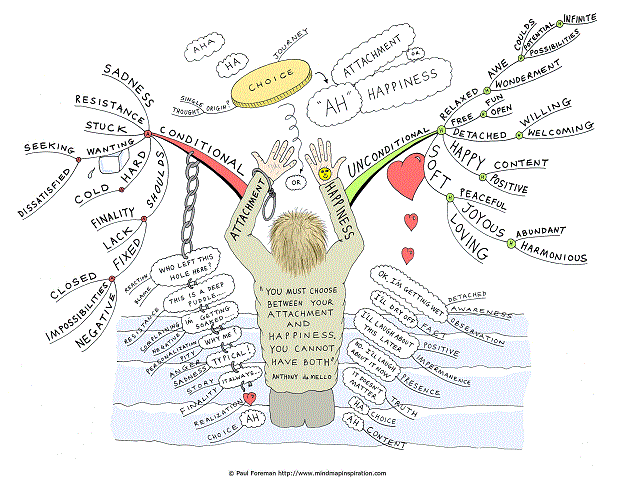 AHA
HA
JOURNEY
CHOICE
SINGLE THOUGHT ORIGIN?
ATTACHMENT
OR
"AH" HAPPINESS
OR
CONDITIONAL
SADNESS
RESISTANCE
STUCK
WANTING
SEEKING
DISSATISFIED
HARD
COLD
SHOULDS
FINALITY
LACK
FIXED
CLOSED
IMPOSSIBILITIES
NEGATIVE
UNCONDITIONAL
RELAXED
AWE
COULDS
POTENTIAL
OR
INFINITE
POSSIBILITIES
WONDERMENT
FREE
FUN
OPEN
DETACHED
WILLING
WELCOMING
HAPPY
CONTENT
POSITIVE
SOFT
PEACEFUL
JOYOUS
LOVING
ABUNDANT
HARMONIOUS
ATTACHMENT
HAPPINESS
"YOU MUST CHOOSE
BETWEEN YOUR
ATTACHMENT
AND
HAPPINESS.
YOU CANNOT
HAVE BOTH"
ANTHONY de MELLO
WHO LEFT THIS
HOLE HERE?
REACTING
BLAME
THIS IS A DEEP
PUDDLE...
RESISTANCE
I'M GETTING
SOAKED...
COMPLAINING
NEGATIVE
WHY ME?
PERSONALIZATION
PITY
TYPICAL...
ANGER
SADNESS
IT ALWAYS...
STORY
FINALITY
REALIZATION
AH
CHOICE
OK I'M GETTING WET
DETACHED
AWARENESS
I'LL DRY OFF
FACT
OBSERVATION
I'LL LAUGH ABOUT
THIS LATER
POSITIVE
IMPERMANENCE
NO. I'LL LAUGH
ABOUT IT NOW
PRESENCE
IT DOESN'T
MATTER
TRUTH
HA
CHOICE
AH
CONTENT
© Paul Foreman http://www.mindmapinspiration.com